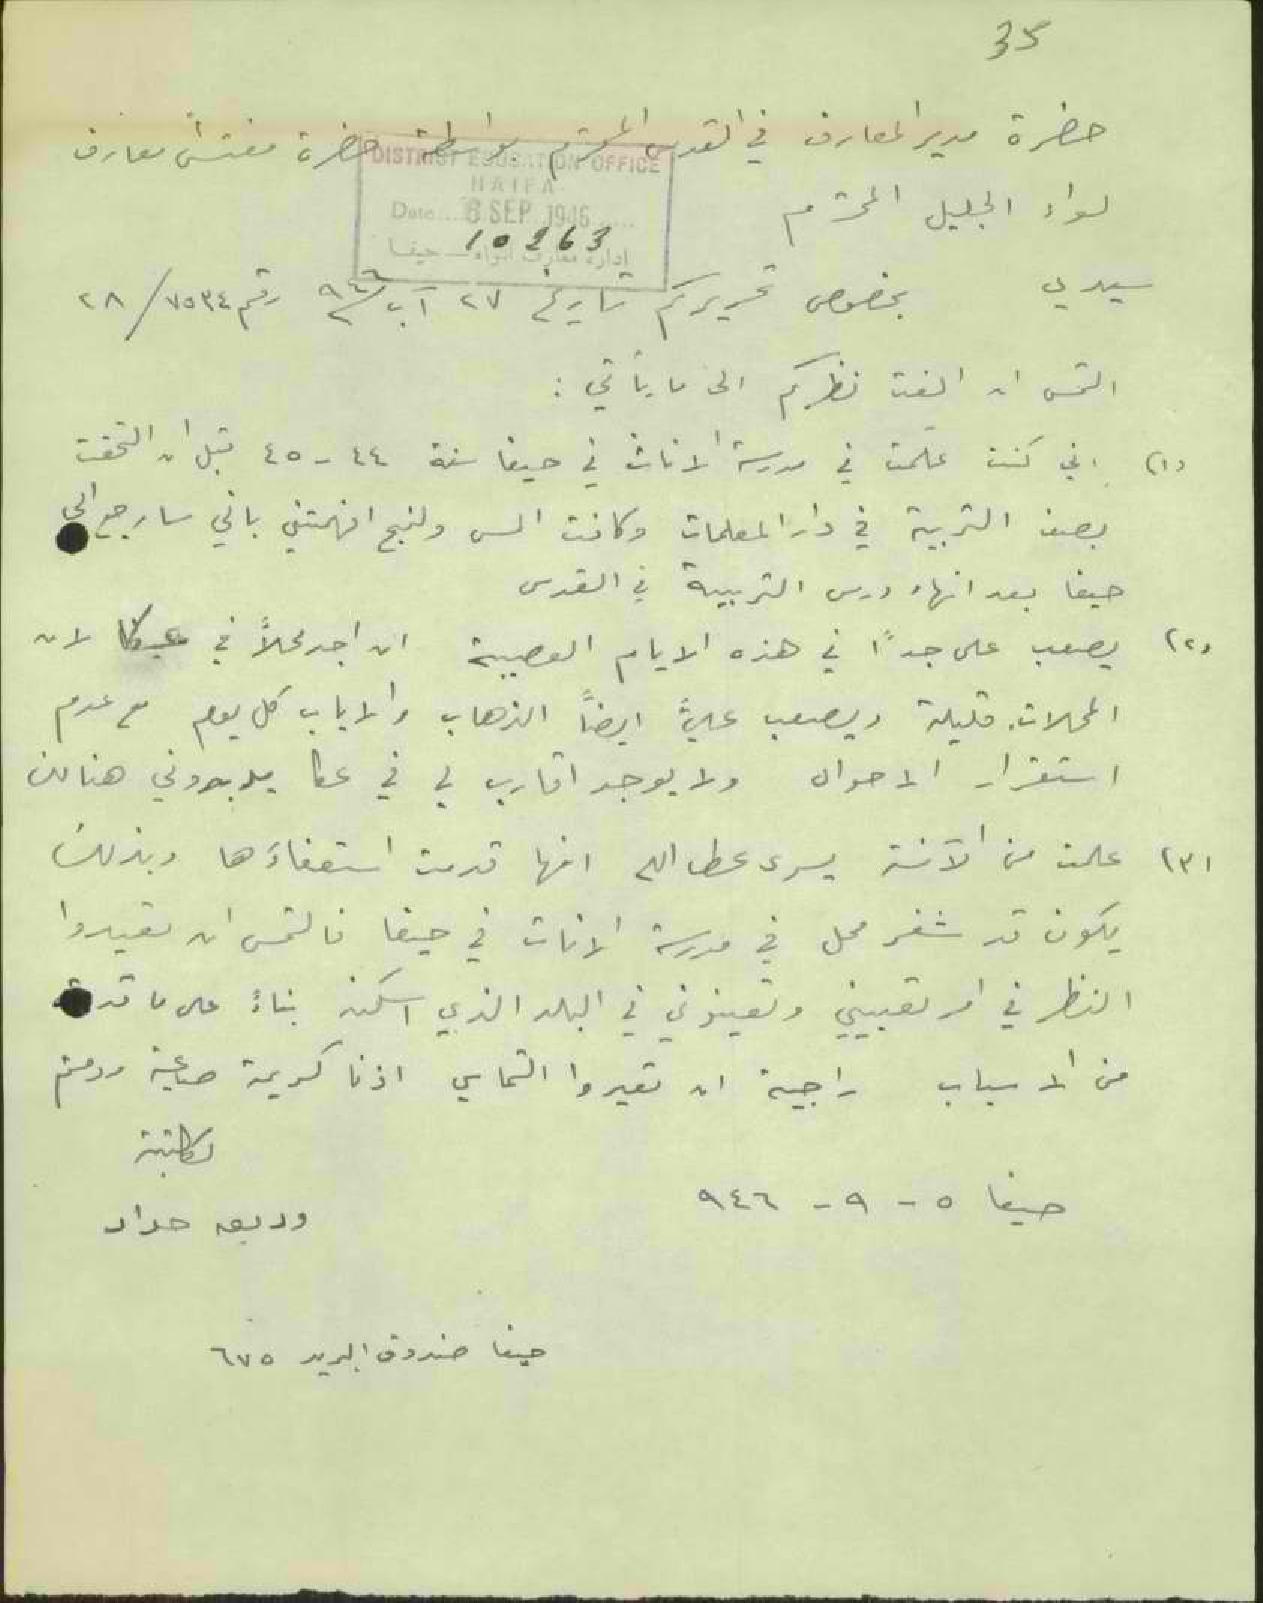 35
حضرة مدير المعارف في القدس المحترم بواسطة حضرة مفتش معارف
DISTRICT EDUCATION OFFICE
HAIFA
Date.... 8 SEP 1946 ......
10263
ادارة معارف اللواء — حيفا
لواء الجليل المحترم
سيدي بخصوص تحريركم تاريخ ٢٧ آب ٩٤٦ رقم ٧٥٣٤/٢٨
التمس ان الفت نظركم الى ما يأتي :
(١) اني كنت علمت في مدرسة الاناث في حيفا سنة ٤٤ - ٤٥ قبل ان التحقت
بصف التربية في دار المعلمات وكانت المس افهمتني باني سارجع الى
حيفا بعد انهاء درس التربية في القدس
(٢) يصعب على جداً في هذه الايام العصيبة ان اجد محلاً في عكا لان
المحلات قليلة ويصعب عليّ ايضاً الذهاب والاياب كل يوم مع عدم
استقرار الاحوال ولا يوجد اقارب لي في عكا هنالك
(٣) علمت من الآنسة يسرى عطاالله انها قدمت استعفاءها وبذلك
يكون قد شغر محل في مدرسة الاناث في حيفا فالتمس ان تعيدوا
النظر في امر تعييني وتعينوني في البلد الذي اسكنه بناءً على ما قدمت
من الاسباب راجية ان تعيروا التماسي اذنا كريمة صاغية ودمتم
لكاتبته
حيفا ٥ - ٩ - ٩٤٦
وديعه حداد
حيفا صندوق البريد ٦٧٥